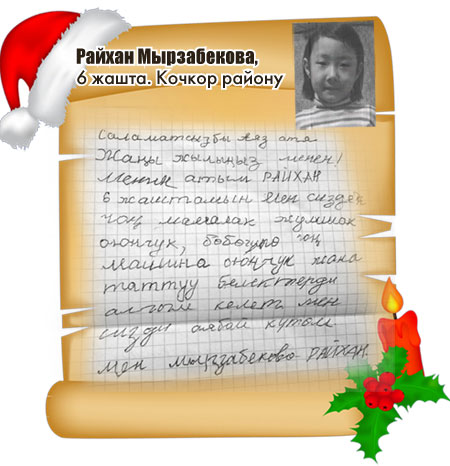 Райхан Мырзабекова,
6 жашта. Кочкор району
Саламатсызбы аяз ата
Жаңы жылыңыз менен!
Менин атым РАЙХАН
6 жаштамын Мен сизден
чоң мамалак жумшак
оюнчук, бобошо чоң
машина оюнчук жана
таттуу белектерди
алгым келет мен
сизди аябай күтөм.
Мен Мырзабекова РАЙХАН.